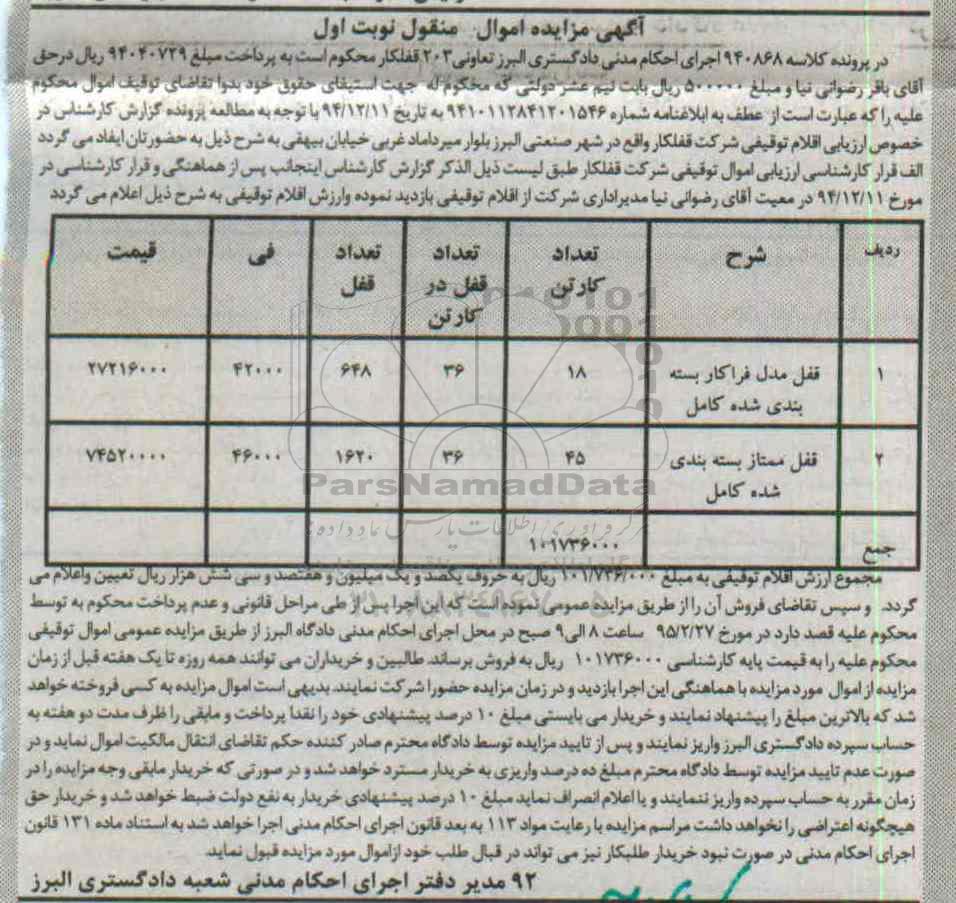 آگهی مزایده اموال منقول نوبت اول
در پرونده کلاسه ۹۴۰۸۶۸ اجرای احکام مدنی دادگستری البرز تعاونی ۲۰۳ قفلکار محکوم است به پرداخت مبلغ ۹۴۰۴۰۷۲۹ ریال درحق
آقای باقر رضوانی نیا و مبلغ ۵۰۰۰۰۰ ریال بابت نیم عشر دولتی که محکوم له جهت استیفای حقوق خود بدوا تقاضای توقیف اموال محکوم
علیه را که عبارت است از عطف به ابلاغنامه شماره ۹۴۱۰۱۱۲۸۴۱۲۰۱۵۴۶ به تاریخ ۹۴/۱۲/۱۱ با توجه به مطالعه پرونده گزارش کارشناس در
خصوص ارزیابی اقلام توقیفی شرکت قفلکار واقع در شهر صنعتی البرز بلوار میرداماد غربی خیابان بیهقی به شرح ذیل به حضورتان ایفاد می گردد
الف قرار کارشناسی ارزیابی اموال توقیفی شرکت قفلکار طبق لیست ذیل الذکر گزارش کارشناس اینجانب پس از هماهنگی و قرار کارشناسی در
مورخ ۹۴/۱۲/۱۱ در معیت آقای رضوانی نیا مدیراداری شرکت از اقلام توقیفی بازدید نموده وارزش اقلام توقیفی به شرح ذیل اعلام می گردد
ردیف شرح تعداد کارتن تعداد قفل در کارتن تعداد قفل فی قیمت
۱ قفل مدل فراکار بسته بندی شده کامل ۱۸ ۳۶ ۶۴۸ ۴۲۰۰۰ ۲۷۲۱۶۰۰۰
۲ قفل ممتاز بسته بندی شده کامل ۴۵ ۳۶ ۱۶۲۰ ۴۶۰۰۰ ۷۴۵۲۰۰۰۰
جمع ۱۰۱۷۳۶۰۰۰
ParsNamadData
مجموع ارزش اقلام توقیفی به مبلغ ۱۰۱/۷۳۶/۰۰۰ ریال به حروف یکصد و یک میلیون و هفتصد و سی شش هزار ریال تعیین واعلام می
گردد. و سپس تقاضای فروش آن را از طریق مزایده عمومی نموده است که این اجرا پس از طی مراحل قانونی و عدم پرداخت محکوم به توسط
محکوم علیه قصد دارد در مورخ ۹۵/۲/۲۷ ساعت ۸ الی۹ صبح در محل اجرای احکام مدنی دادگاه البرز از طریق مزایده عمومی اموال توقیفی
محکوم علیه را به قیمت پایه کارشناسی ۱۰۱۷۳۶۰۰۰ ریال به فروش برساند. طالبین و خریداران می توانند همه روزه تا یک هفته قبل از زمان
مزایده از اموال مورد مزایده با هماهنگی این اجرا بازدید و در زمان مزایده حضورا شرکت نمایند. بدیهی است اموال مزایده به کسی فروخته خواهد
شد که بالاترین مبلغ را پیشنهاد نمایند و خریدار می بایستی مبلغ ۱۰ درصد پیشنهادی خود را نقدا پرداخت و مابقی را ظرف مدت دو هفته به
حساب سپرده دادگستری البرز واریز نمایند و پس از تایید مزایده توسط دادگاه محترم صادر کننده حکم تقاضای انتقال مالکیت اموال نماید و در
صورت عدم تایید مزایده توسط دادگاه محترم مبلغ ده درصد واریزی به خریدار مسترد خواهد شد و در صورتی که خریدار مابقی وجه مزایده را در
زمان مقرر به حساب سپرده واریز ننمایند و یا اعلام انصراف نماید مبلغ ۱۰ درصد پیشنهادی خریدار به نفع دولت ضبط خواهد شد و خریدار حق
هیچگونه اعتراضی را نخواهد داشت مراسم مزایده با رعایت مواد ۱۱۳ به بعد قانون اجرای احکام مدنی اجرا خواهد شد به استناد ماده ۱۳۱ قانون
اجرای احکام مدنی در صورت نبود خریدار طلبکار نیز می تواند در قبال طلب خود ازاموال مورد مزایده قبول نماید.
۹۲ مدیر دفتر اجرای احکام مدنی شعبه دادگستری البرز